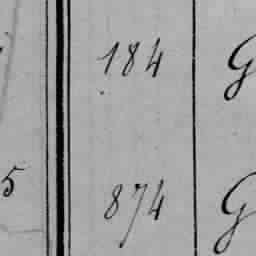 184 G
5 874 G